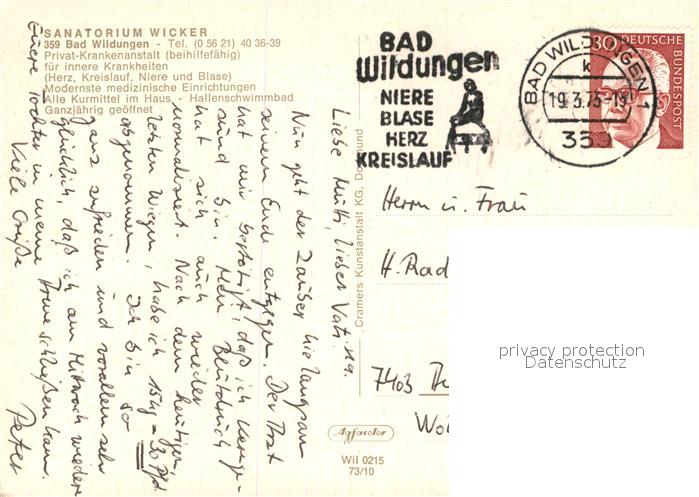 SANATORIUM WICKER
359 Bad Wildungen - Tel. (0 56 21) 40 36-39
Privat-Krankenanstalt (beihilfefähig)
für innere Krankheiten
(Herz, Kreislauf, Niere und Blase)
Modernste medizinische Einrichtungen
Alle Kurmittel im Haus - Hallenschwimmbad
Ganzjährig geöffnet
BAD
Wildungen
NIERE
BLASE
HERZ
KREISLAUF
BAD WILDUNGEN 1
k
19.3.73-19
30 DEUTSCHE
BUNDESPOST
Liebe Mutti, lieber Vati,
Nun geht der Zauber hier langsam
seinem Ende entgegen. Der Arzt
hat mir bestätigt, daß ich kernge-
sund bin. Mein Blutdruck
hat sich auch wieder
normalisiert. Nach dem heutigen,
letzten Wiegen, habe ich 15 kg = 30 Pfd
abgenommen. Ich bin so
ganz zufrieden und vor allem sehr
glücklich, daß ich am Mittwoch wieder
Eure Tochter in meine Arme schließen kann.
Viele Grüße
Peter
Cramers Kunstanstalt KG, Dortmund
Herrn u. Frau
H. Rad
7403
Agfacolor
Wil 0215
73/10
privacy protection
Datenschutz